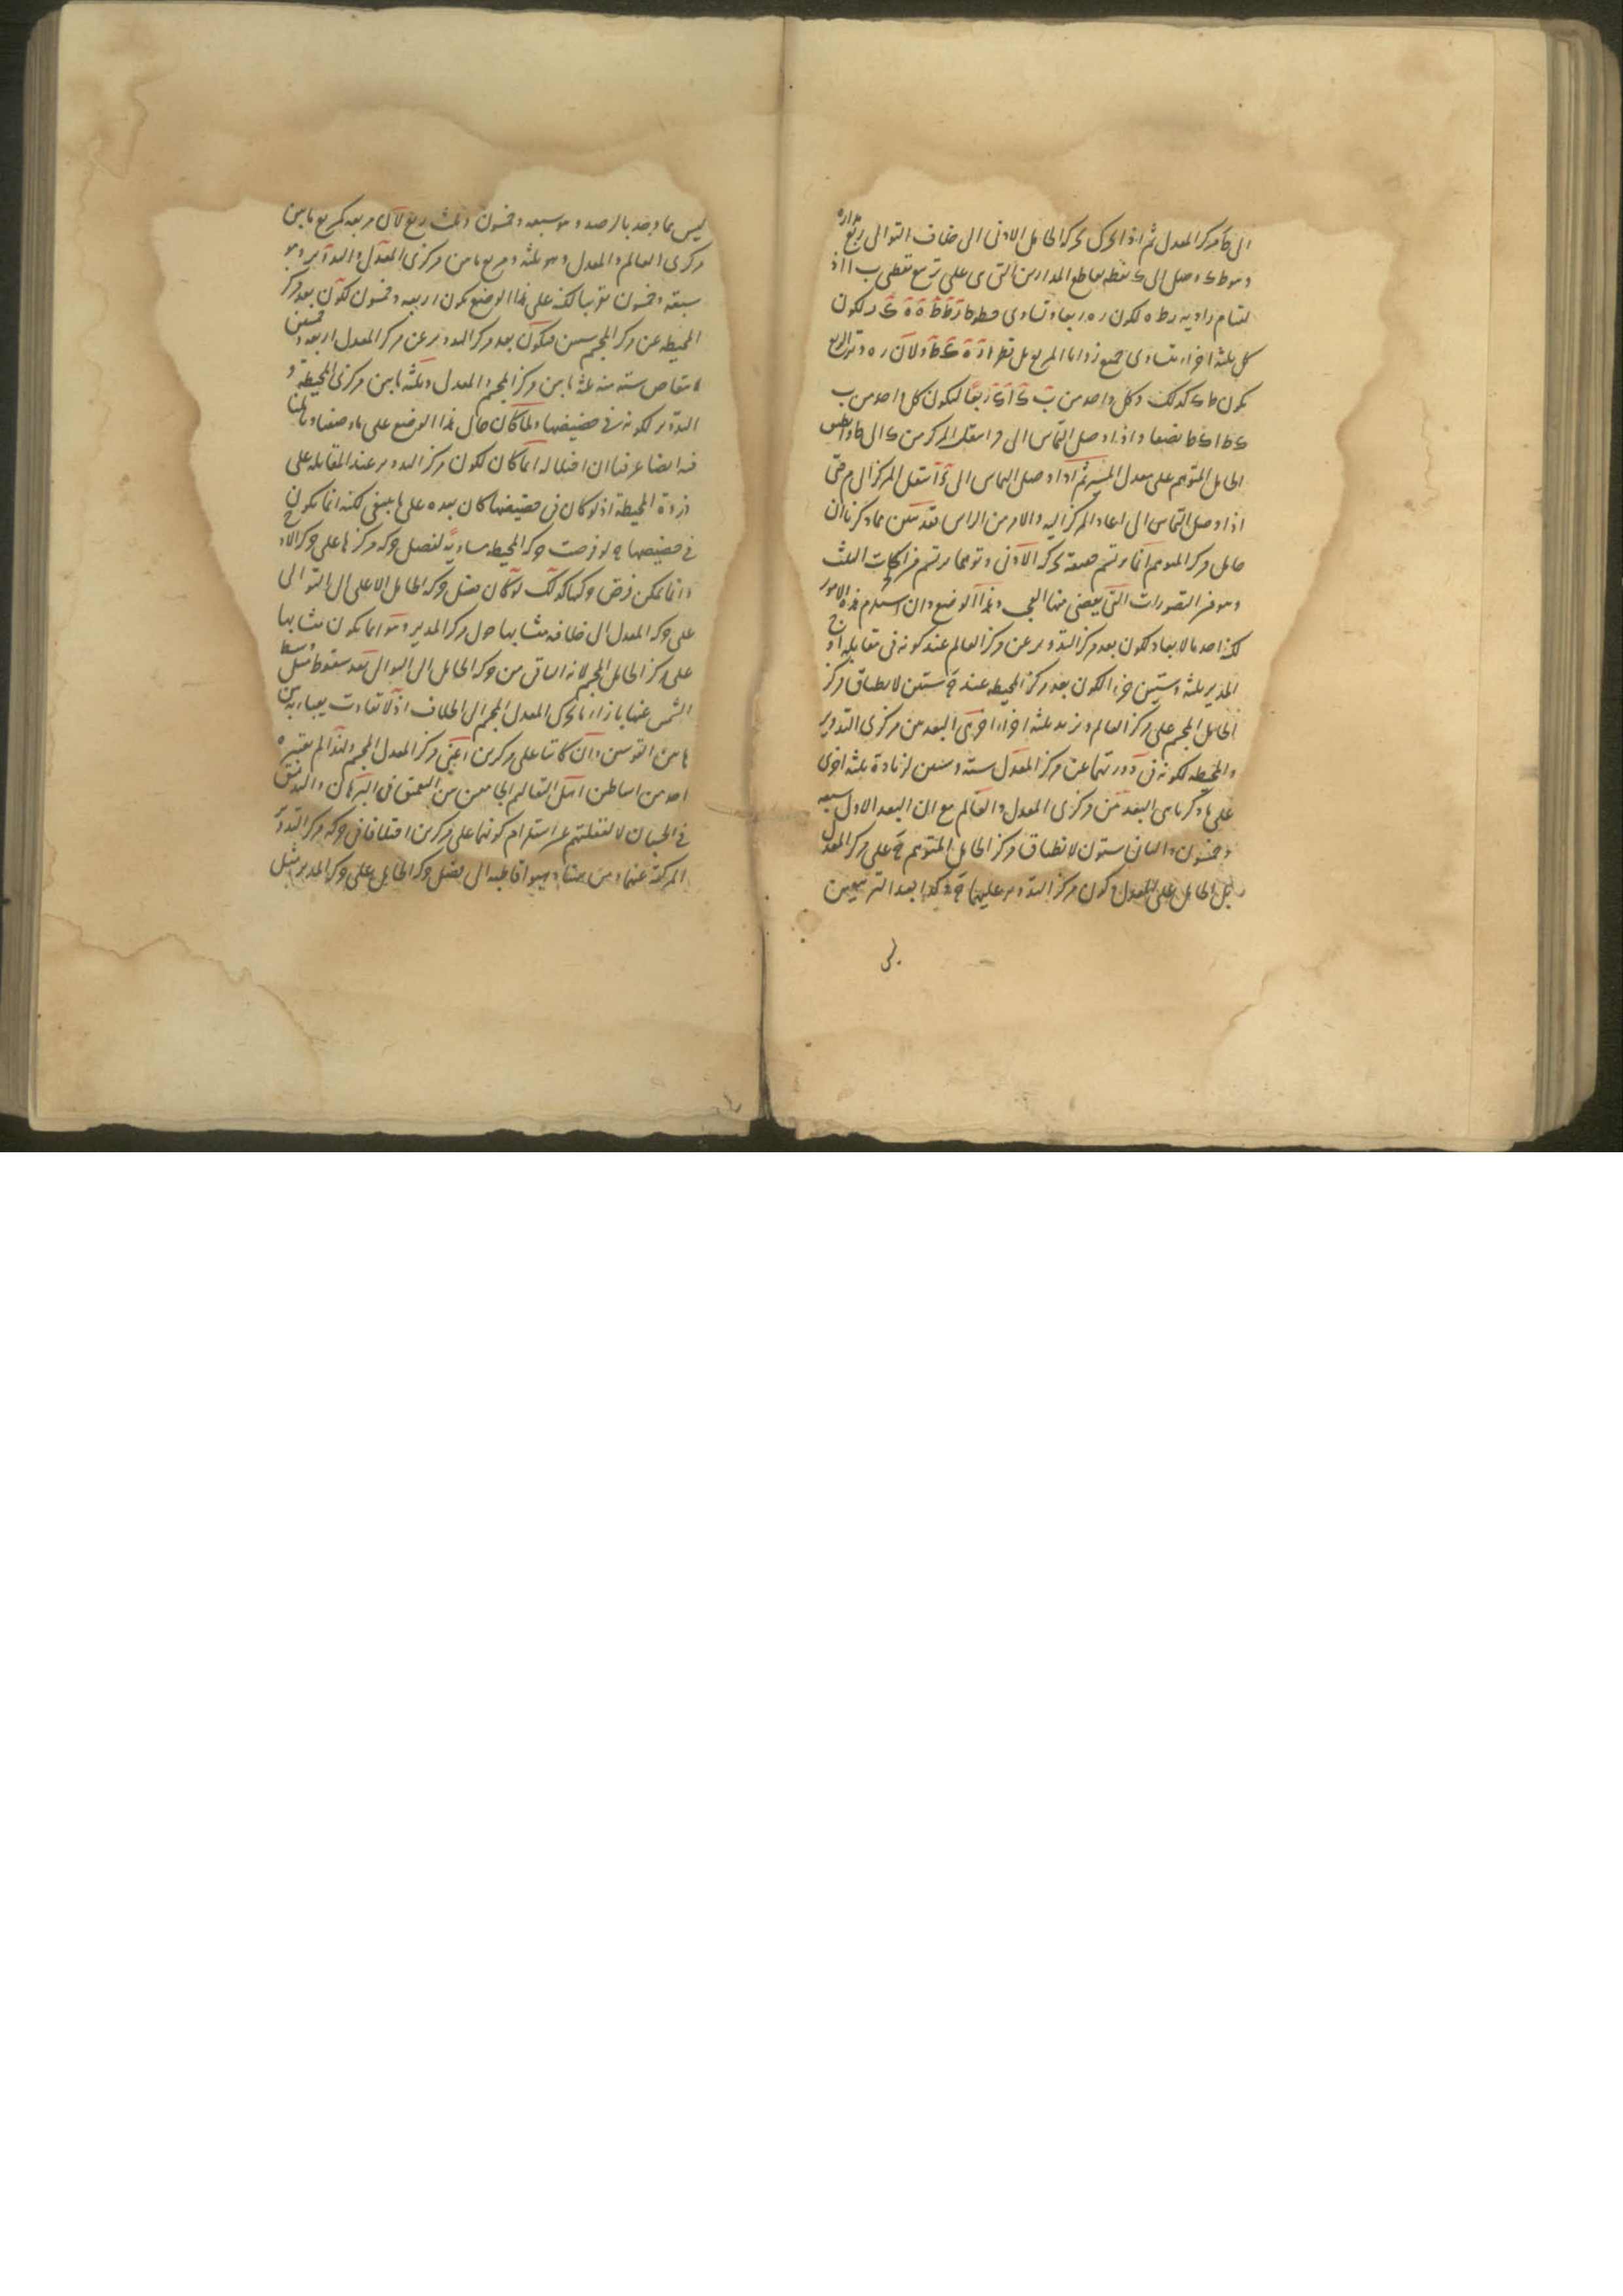 الى ط مركز المعدل ثم اذا تحرك بحركة الحامل الادنى الى خلاف التوالى ربع مداره
وهو ط ى وصل الى ى نقطة تقاطع المدارين التى هى على تربيع نقطتى ب ا اذ
لقيام زاوية ر ط ه لكون ر ه ربعا وتساوى خطوط لكون
كل ثلثة اجزاء يتساوى جميع زوايا المربع بل ولان ر ه وتر الربع
يكون ط ى كذلك وكل واحد من ربعا ليكون كل واحد من ب
نصفا واذا وصل التماس الى انتقل المركز من ى الى ط وانطبق
الحامل المتوهم على معدل المسير ثم اذا وصل التماس الى انتقل المركز الى م حتى
اذا وصل التماس الى ا عاد المركز اليه والامر من الراس فقد تبين مما ذكرنا ان
حامل مركز المتوهم انما يرتسم حقيقة بحركة الادنى وتوهما يرتسم من الحركات الثلث
وهو من التصورات التى يقضى منها العجب وهذا الوضع وان استلزم هذه الامور
لكن احد الابعاد لكون بعد مركز التدوير عن مركز العالم عند كونه فى مقابلة اوج
المدير ثلثة وستين جزءا لكون بعد مركز المحيطة عنه ح ستين لانطباق مركز
الحامل المجسم على مركز العالم ونزيد ثلثة اجزاء اخرى البعد من مركزى التدوير
والمحيطة لكونه فى ذروتها عن مركز المعدل ستة وستين لزيادة ثلثة اخرى
على ما ذكرنا هى البعد من مركزى المعدل والعالم مع ان البعد الاول سبعة
وخمسون والثانى ستون لانطباق مركز الحامل المتوهم ح على مركز المعدل
بل الحامل على المعدل وكون مركز التدوير عليهما ح وكذا بعد التربيعين
ليس مما وجد بالرصد وهو سبعة وخمسون وثلث ربع لان مربعه كمربع ما بين
مركزى العالم والمعدل وهو ثلثة ومربع ما بين مركزى المعدل والتدوير وهو
سبعة وخمسون تقريبا لكنه على هذا الوضع يكون اربعة وخمسون لكون بعد مركز
المحيطة عن مركز المجسم ستين فيكون بعد مركز التدوير عن مركز المعدل اربعة وخمسين
لانتقاص ستة منه ثلثة ما بين مركز المجسم والمعدل وثلثة ما بين مركزى المحيطة و
التدوير لكونه فى حضيضها ولما كان حال هذا الوضع على ما وصفنا
فيه ايضا عرفنا ان اختلاله انما كان لكون مركز التدوير عند المقابلة على
ذروة المحيطة اذ لو كان فى حضيضها كان بعده على ما ينبغى لكنه انما يكون ح
فى حضيضها لو فرضت حركة المحيطة مساوية لفضل حركة مركزها على حركة الاد
وانما يمكن فرض حركتها كذلك لو كان فضل حركة الحامل الاعلى الى التوالى
على حركة المعدل الى خلافه متشابها حول مركز المدير وهو انما يكون متشابها
على مركز الحامل المجسم لانه الباقى من حركة الحامل الى التوالى بعد سقوط مثل وسط
الشمس عنها بازاء ما تحرك المعدل المجسم الى الخلاف اذ لا تفاوت يعبا به بين
هاتين القوسين وان كانتا على مركزين اعنى مركز المعدل المجسم ولهذا لم يعتبره
احد من اساطين اهل التعاليم الجامعين بين التعمق فى البرهان والتدقيق
فى الحسبان لا لغفلتهم عن استلزام كونهما على مركزين اختلافا فى حركة مركز التدوير
المركبة عنهما ومن هنا ذهبوا قاطبة الى فضل حركة الحامل على حركة المدير مثل